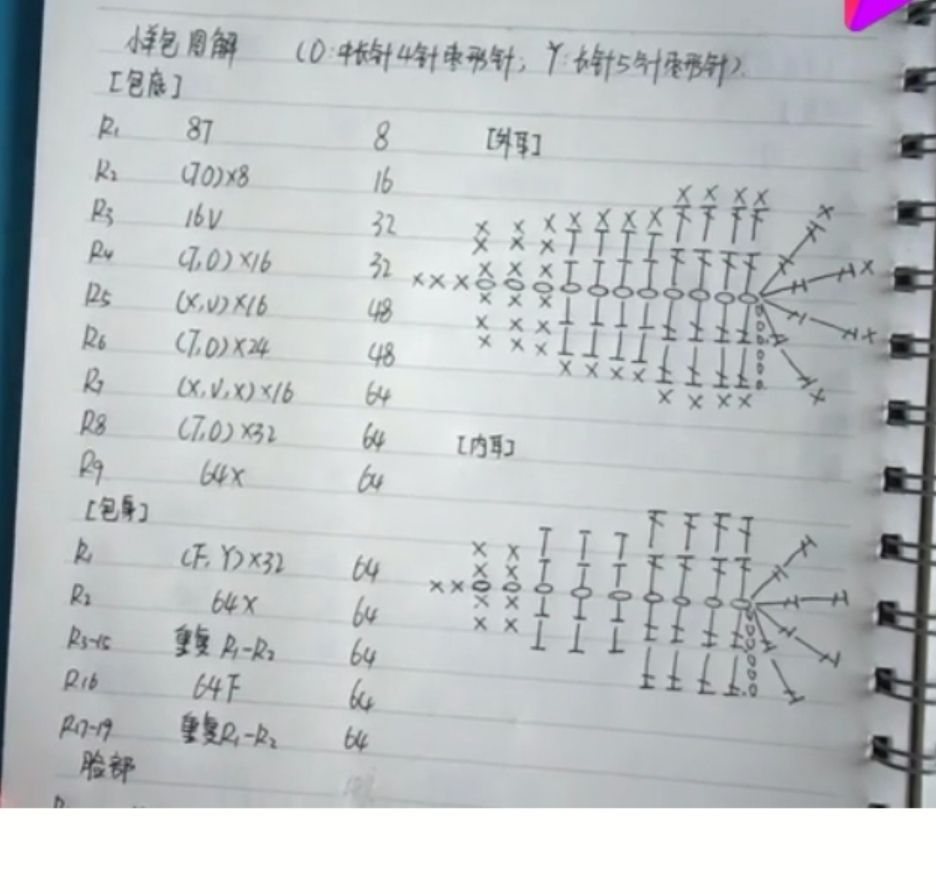 小羊包图解 (O:中长针4针枣形针; Y:长针5针枣形针).
[包底]
R1 8T 8
R2 (TO)×8 16
R3 16V 32
R4 (T,O)×16 32
R5 (X,V)×16 48
R6 (T,O)×24 48
R7 (X,V,X)×16 64
R8 (T,O)×32 64
R9 64X 64
[包身]
R1 (F,Y)×32 64
R2 64X 64
R3-15 重复R1-R2 64
R16 64F 64
R17-19 重复R1-R2 64
脸部
[外耳]
[内耳]